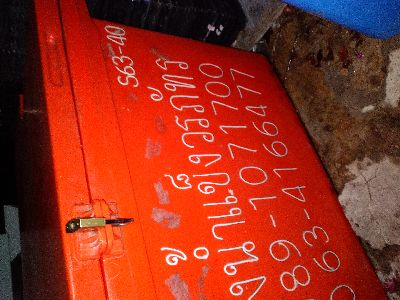 S63-40
งน้ำแข็งวรภัทร
089-1071700
063-4166477